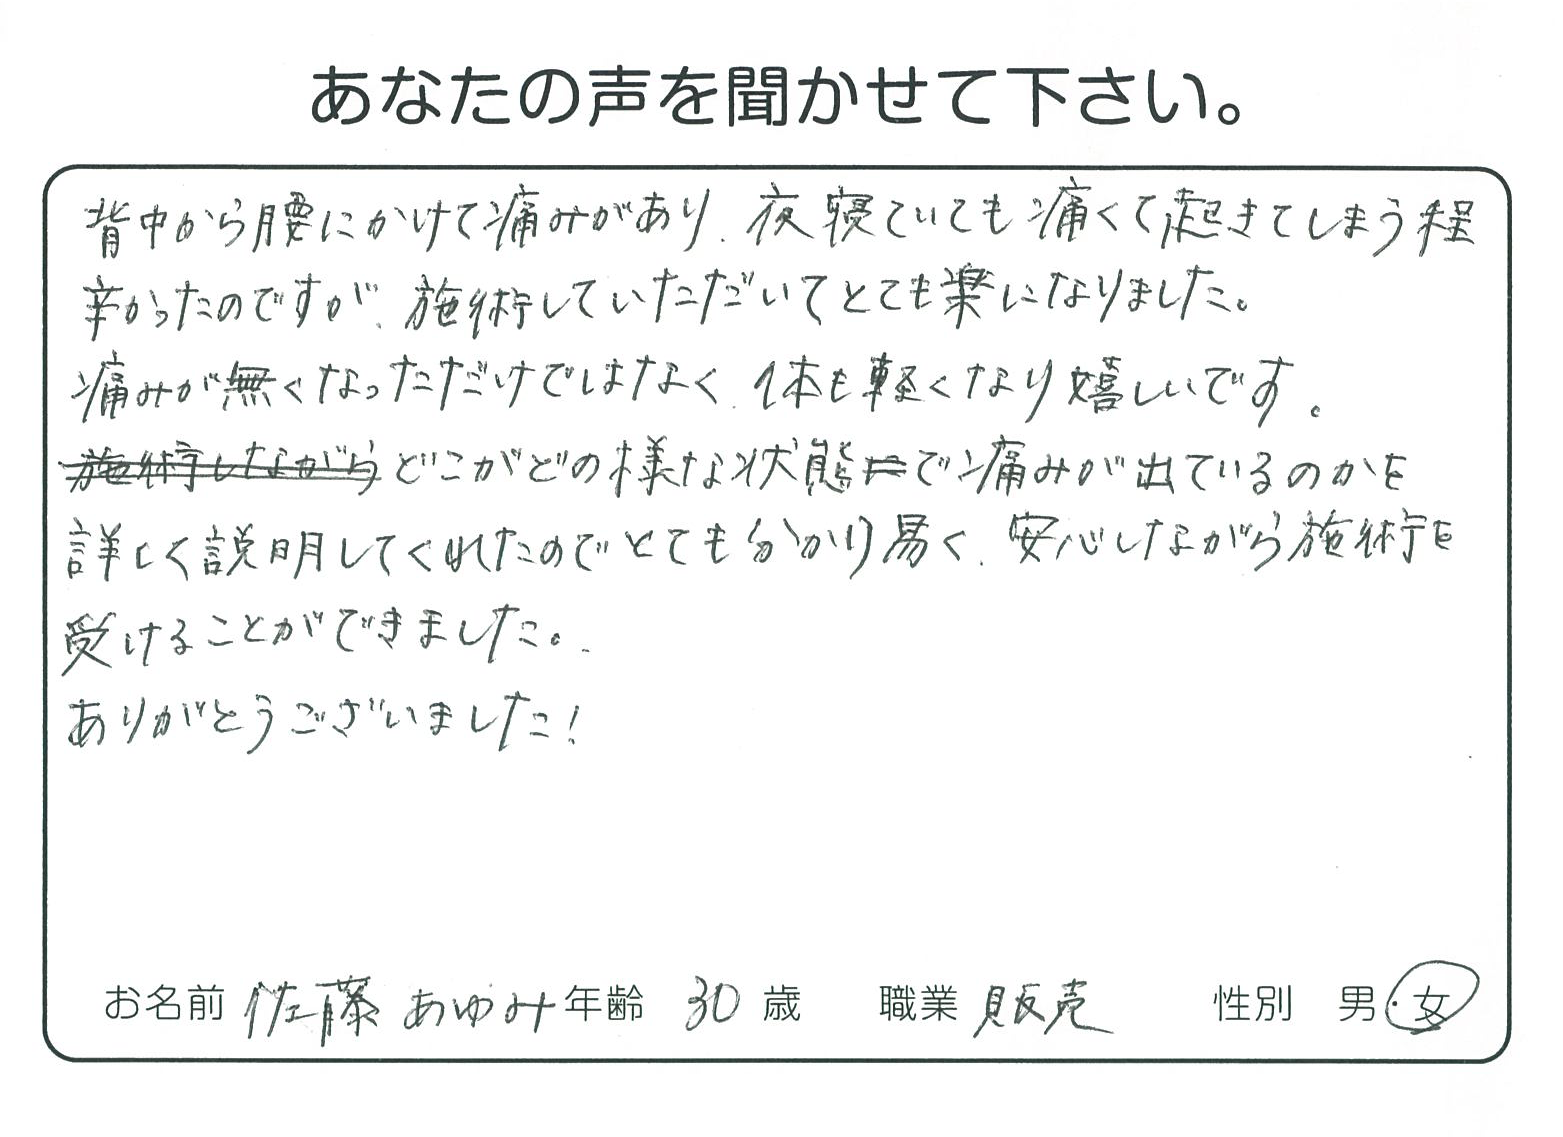 あなたの声を聞かせて下さい。
背中から腰にかけて痛みがあり、夜寝ていても痛くて起きてしまう程
辛かったのですが、施術していただいてとても楽になりました。
痛みが無くなっただけではなく、体も軽くなり嬉しいです。
施術しながらどこがどの様な状態で痛みが出ているのかを
詳しく説明してくれたのでとても分かり易く、安心しながら施術を
受けることができました。
ありがとうございました!
お名前 佐藤 あゆみ 年齢 30 歳 職業 販売 性別 男・女